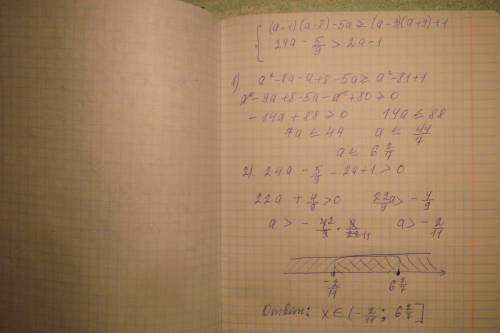 { (a-1)(a-8)-5a ≥ (a-9)(a+9)+1
24a - 5/9 > 2a-1
1) a²-8a-a+8-5a ≥ a²-81+1
a²-9a+8-5a-a²+80 ≥ 0
-14a+88 ≥ 0 14a ≤ 88
7a ≤ 44 a ≤ 44/7
a ≤ 6 2/7
2) 24a - 5/9 - 2a+1 > 0
22a + 4/9 > 0 a > - 4/9
a > - · a > - 2/11
-2/11 6 2/7
Ответ: x ∈ (- 2/11 ; 6 2/7 ]